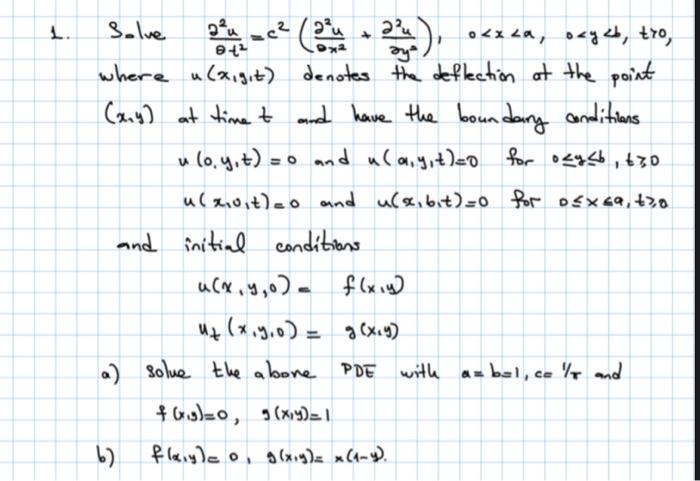 1. Solve ∂²u/∂t² = c² (∂²u/∂x² + ∂²u/∂y²), 0<x<a, 0<y<b, t>0,
where u(x,y,t) denotes the deflection at the point
(x,y) at time t and have the boundary conditions
u(0,y,t)=0 and u(a,y,t)=0 for 0≤y≤b, t≥0
u(x,0,t)=0 and u(x,b,t)=0 for 0≤x≤a, t≥0
and initial conditions
u(x,y,0) = f(x,y)
u_t(x,y,0) = g(x,y)
a) solve the above PDE with a=b=1, c=1/π and
f(x,y)=0, g(x,y)=1
b) f(x,y)=0, g(x,y)= x(1-y).